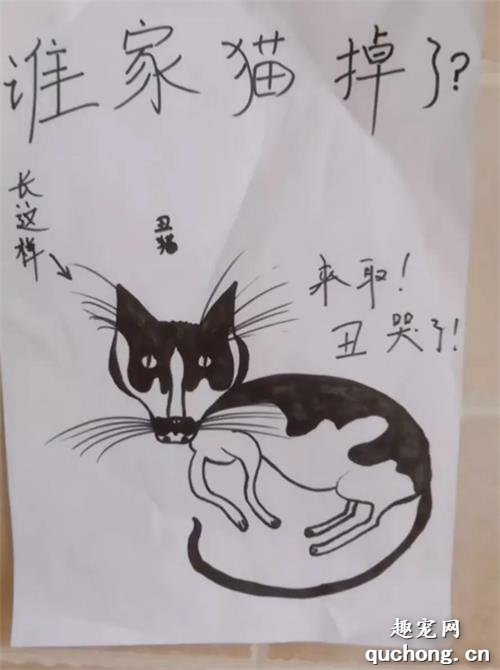 谁家猫掉了?
长这样
丑猫
来取!
丑哭了!
趣宠网
quchong.cn